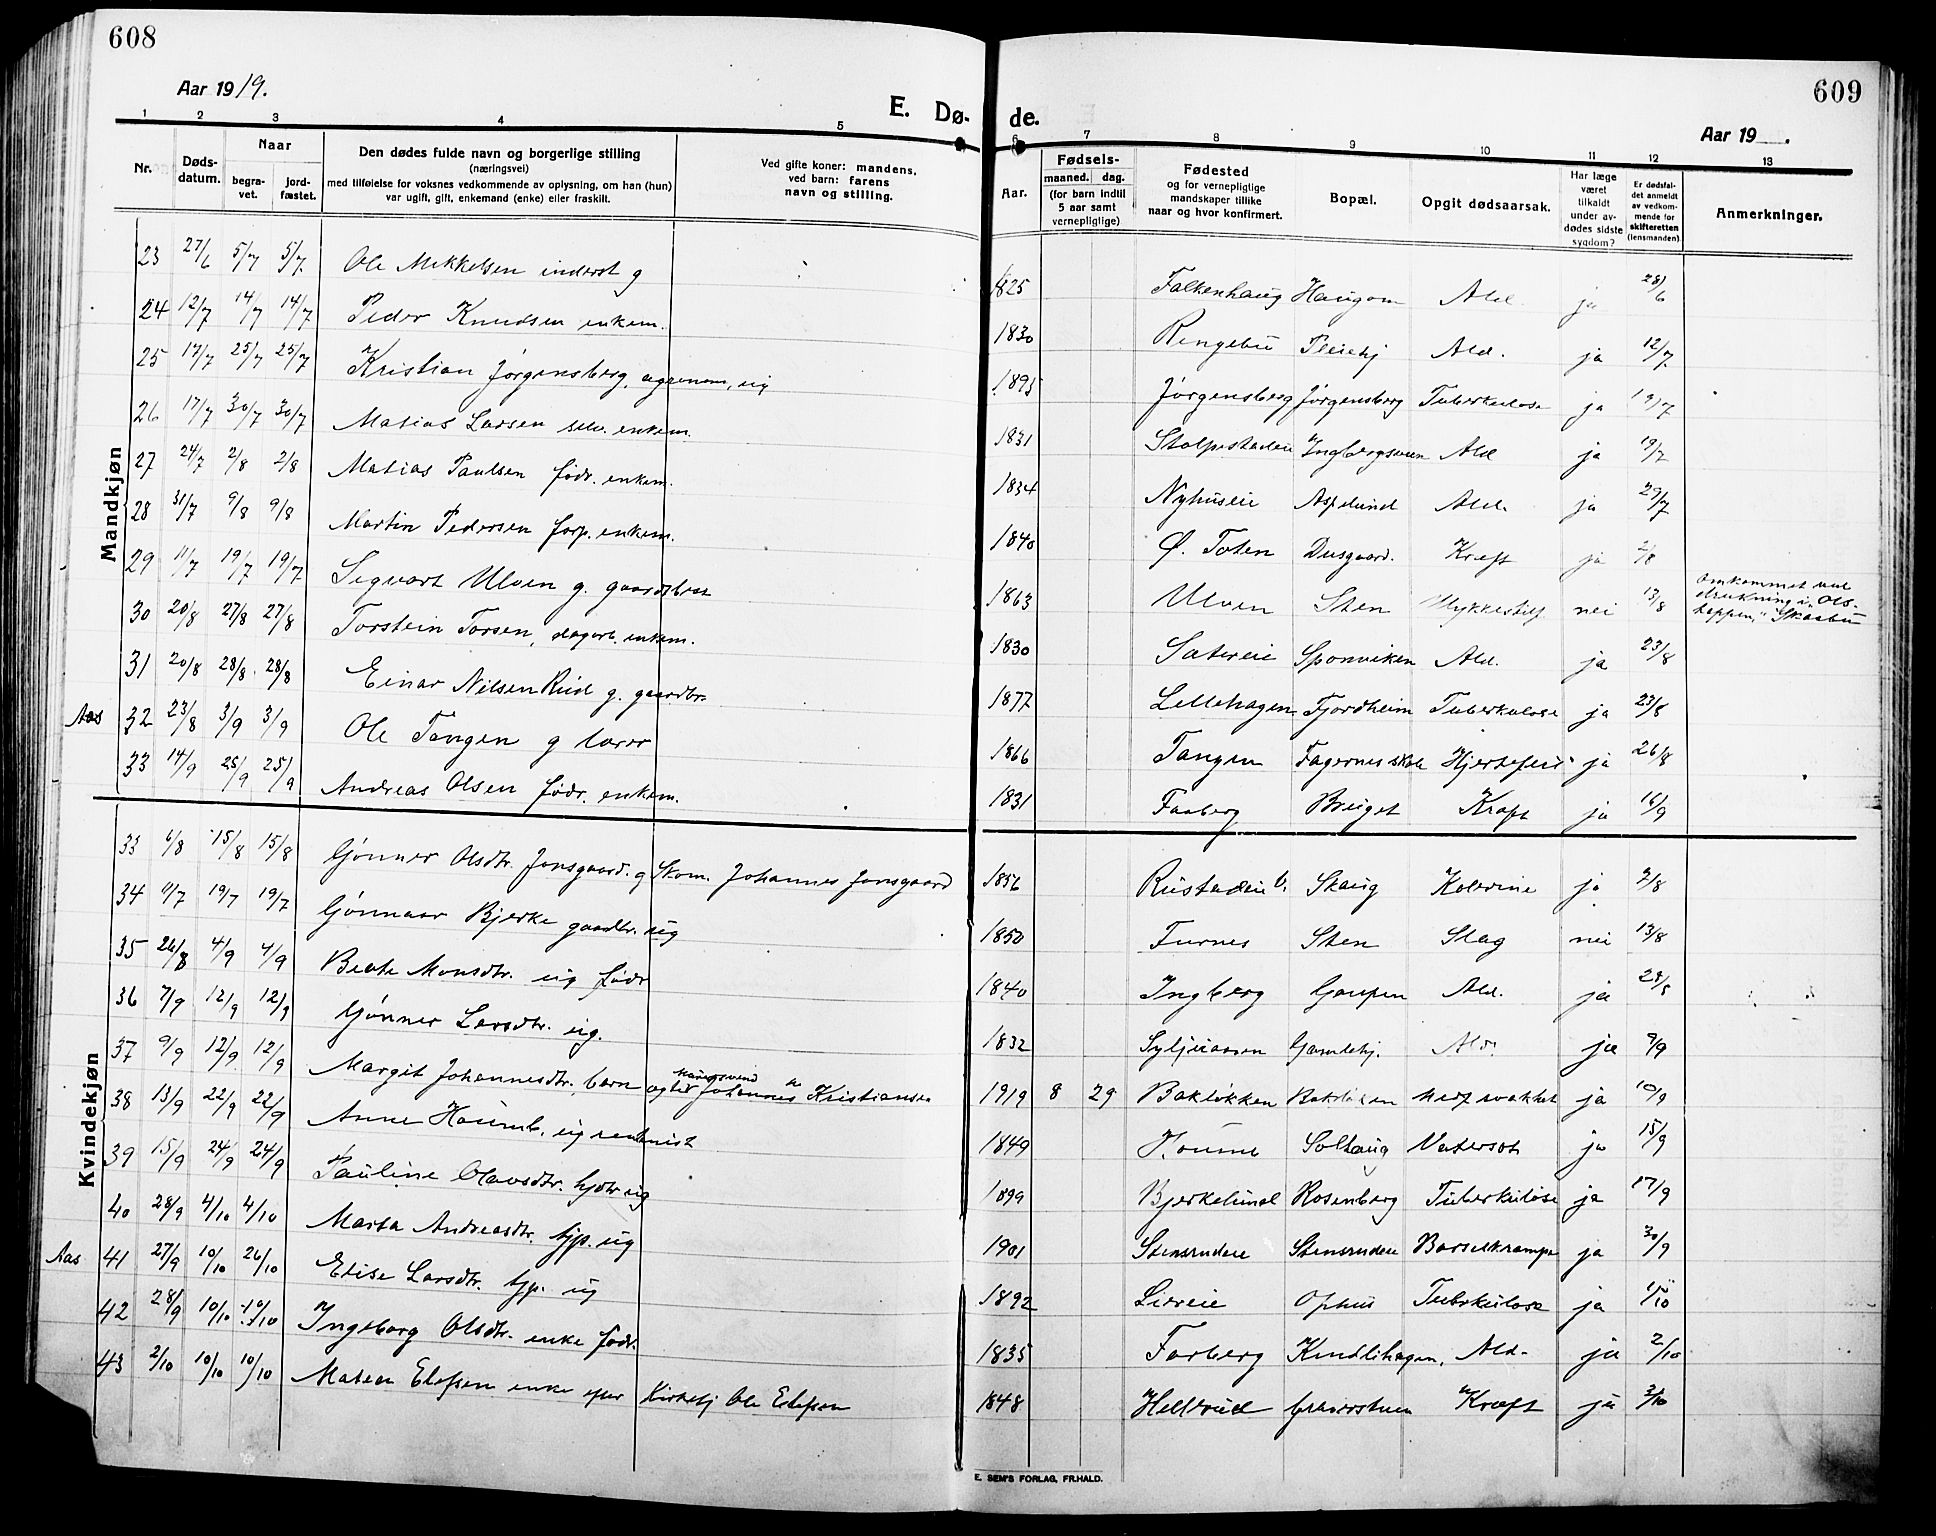 608
609
Aar 1919.
E. Dø-
de.
Aar 19 .
1 2 3 4 5 6 7 8 9 10 11 12 13
Nr.
Døds-
datum.
Naar
begra-
vet.
jord-
fæstet.
Den dødes fulde navn og borgerlige stilling
(næringsvei)
med tilføielse for voksnes vedkommende av oplysning, om han (hun)
var ugift, gift, enkemand (enke) eller fraskilt.
Ved gifte koner: mandens,
ved barn: farens
navn og stilling.
Aar.
Fødsels-
maaned. dag.
(for barn indtil
5 aar samt
vernepligtige)
Fødested
og for vernepligtige
mandskaper tillike
naar og hvor konfirmert.
Bopæl.
Opgit dødsaarsak.
Har læge
været
tilkaldt
under av-
dødes sidste
sygdom?
Er dødsfal-
det anmeldt
av vedkom-
mende for
skifteretten
(lensmanden)
Anmerkninger.
Mandkjøn
23 27/6 5/7 5/7 Ole Mikkelsen inderst g 1825 Falkenhaug Haugom Ald. ja 28/6
24 12/7 14/7 14/7 Peder Knudsen enkem. 1830 Ringebu Pleiehj Ald. ja 12/7
25 17/7 25/7 25/7 Kristian Jørgensberg, agronom, ug 1895 Jørgensberg Jørgensberg Tuberkulose ja 19/7
26 17/7 30/7 30/7 Matias Larsen selv. enkem. 1831 Stolpestadeie Ingbergsveen Ald ja 19/7
27 24/7 2/8 2/8 Matias Paulsen fodr. enkem. 1834 Nyhuseie Aspelund Ald. ja 29/7
28 31/7 9/8 9/8 Martin Pedersen forp. enkem. 1840 Ø. Toten Dusgaard. Kræft ja 2/8
29 11/7 19/7 19/7 Sigvart Ulven g. gaardbr 1863 Ulven Sten Ulykkestilf nei 13/8 omkommet ved drukning i "Ols- " Skaabu
30 20/8 27/8 27/8 Torstein Torsen, dagarb. enkem. 1830 Sætereie Sponviken Ald. ja 23/8
31 20/8 28/8 28/8 Einar Nilsen Rud g. gaardbr. 1877 Lillehagen Fjordheim Tuberkulose ja 23/8
Aas 32 23/8 3/9 3/9 Ole Tangen g lærer 1866 Tangen Fagernes skole Hjertefeil ja 26/8
33 14/9 25/9 25/9 Andreas Olsen fødr. enkem. 1831 Faaberg Bruget Kræft ja 16/9
Kvindekjøn
33 6/8 15/8 15/8 Gønner Olsdtr. Jonsgaard. g Skom. Johannes Jonsgaard 1856 Rustadeie V. Skaug Kolerine ja 7/8
34 11/7 19/7 19/7 Gønnaar Bjerke gaardbr. ug 1850 Furnes Sten Slag nei 13/8
35 26/8 4/9 4/9 Beate Monsdtr. ug fødr 1840 Ingberg Gaupen Ald. ja 28/8
36 7/9 12/9 12/9 Gønner Larsdtr. ug. 1832 Syljuaasen Gamlehj. Ald. ja 9/9
37 9/9 12/9 12/9 Margit Johannesdtr. barn Johannes Kristiansen 1919 8 29 Bakløkken Bakløkken ja 10/9
38 13/9 22/9 22/9 Anne Houmb. ug rentenist 1849 Houmb Solhaug Vatersot ja 15/9
39 15/9 24/9 24/9 Pauline Olavsdtr. hjdtr ug 1899 Bjerkelund Rosenberg Tuberkulose ja 17/9
40 28/9 4/10 4/10 Marta Andreasdtr. tjp. ug 1901 Stensrudeie Stensrudeie Barselkrampe ja 30/9
Aas 41 27/9 10/10 26/10 Elise Larsdtr. tjp. ug 1892 Liereie Ophus Tuberkulose ja 1/10
42 28/9 10/10 10/10 Ingeborg Olsdtr. enke fodr. 1835 Farberg Kindlihagen, Ald. ja 2/10
43 2/10 10/10 10/10 Matea Elefsen enke efter Kirketj Ole Elefsen 1848 Hellerud Kræft ja 3/10
E. SEM'S FORLAG, FR.HALD.